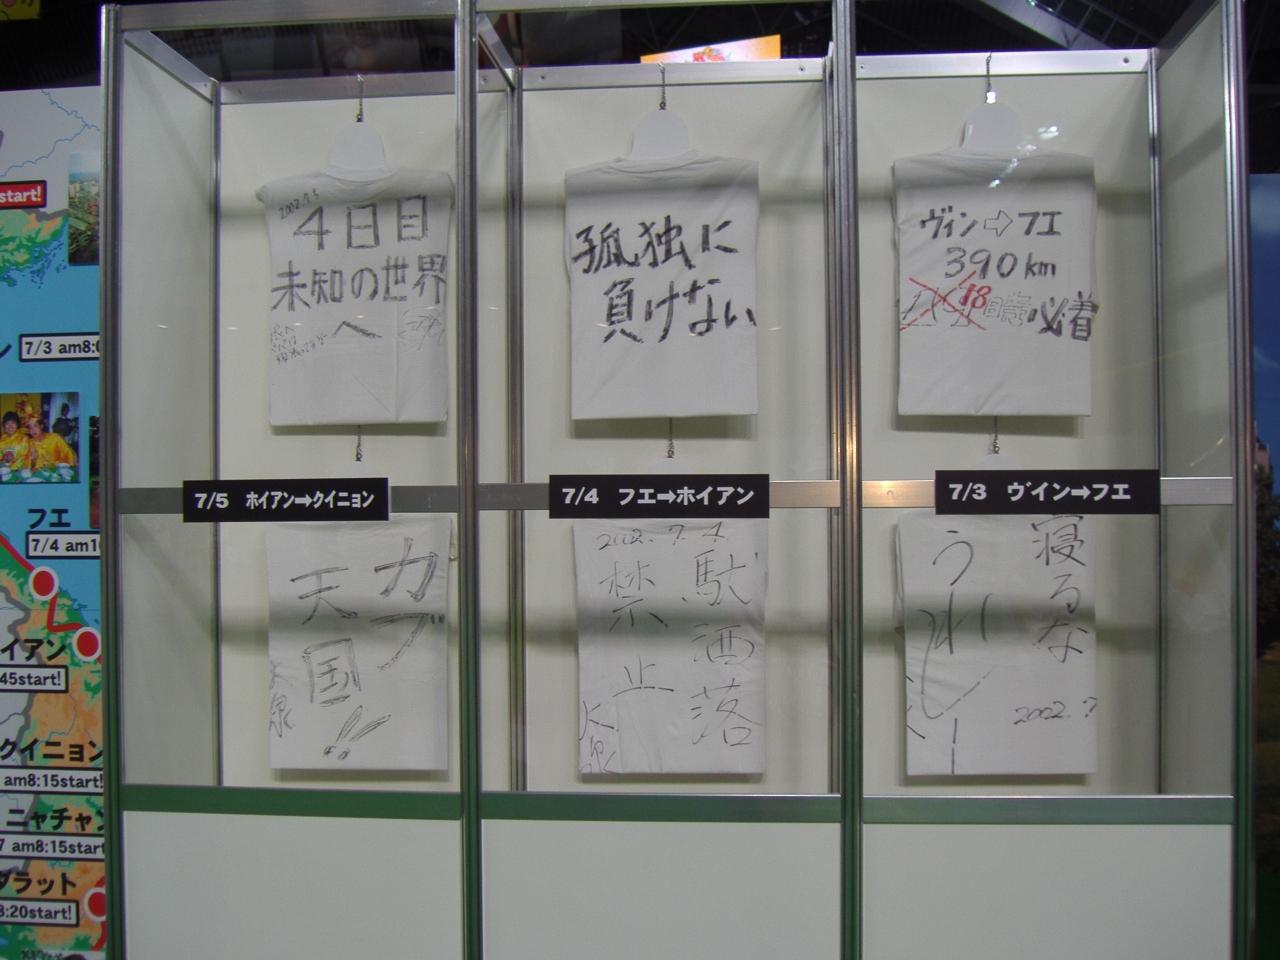 start!
7/3 am8:0
フエ
7/4 am1
イアン
45start!
クイニョン
am8:15start!
ニャチャン
7 am8:15start!
ダラット
8:20start!
2002.7.5
4日目
未知の世界
へ
7/5 ホイアン➡クイニョン
カブ
天国!!
大泉
孤独に
負けない
7/4 フエ➡ホイアン
2002.7.4
駄洒落
禁止
大泉
ヴィン⇨フエ
390km
18時必着
7/3 ヴィン➡フエ
寝るな
うれしー
2002.7